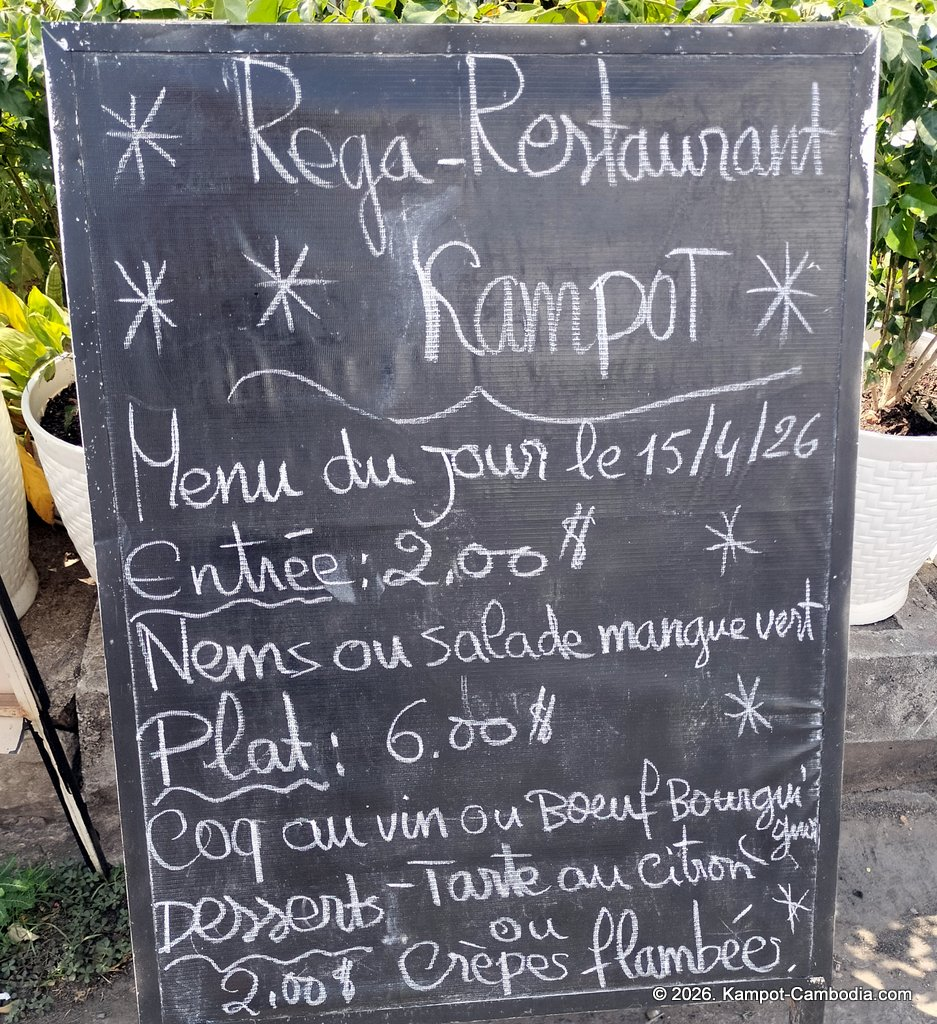 Rega-Restaurant
Kampot
Menu du jour le 15/4/26
Entrée: 2,00 $
Nems ou salade mangue vert
Plat: 6.00 $
Coq au vin ou Boeuf Bourgui
gnon
Desserts - Tarte au citron
ou
2.00 $ Crèpes flambées.
© 2026. Kampot-Cambodia.com